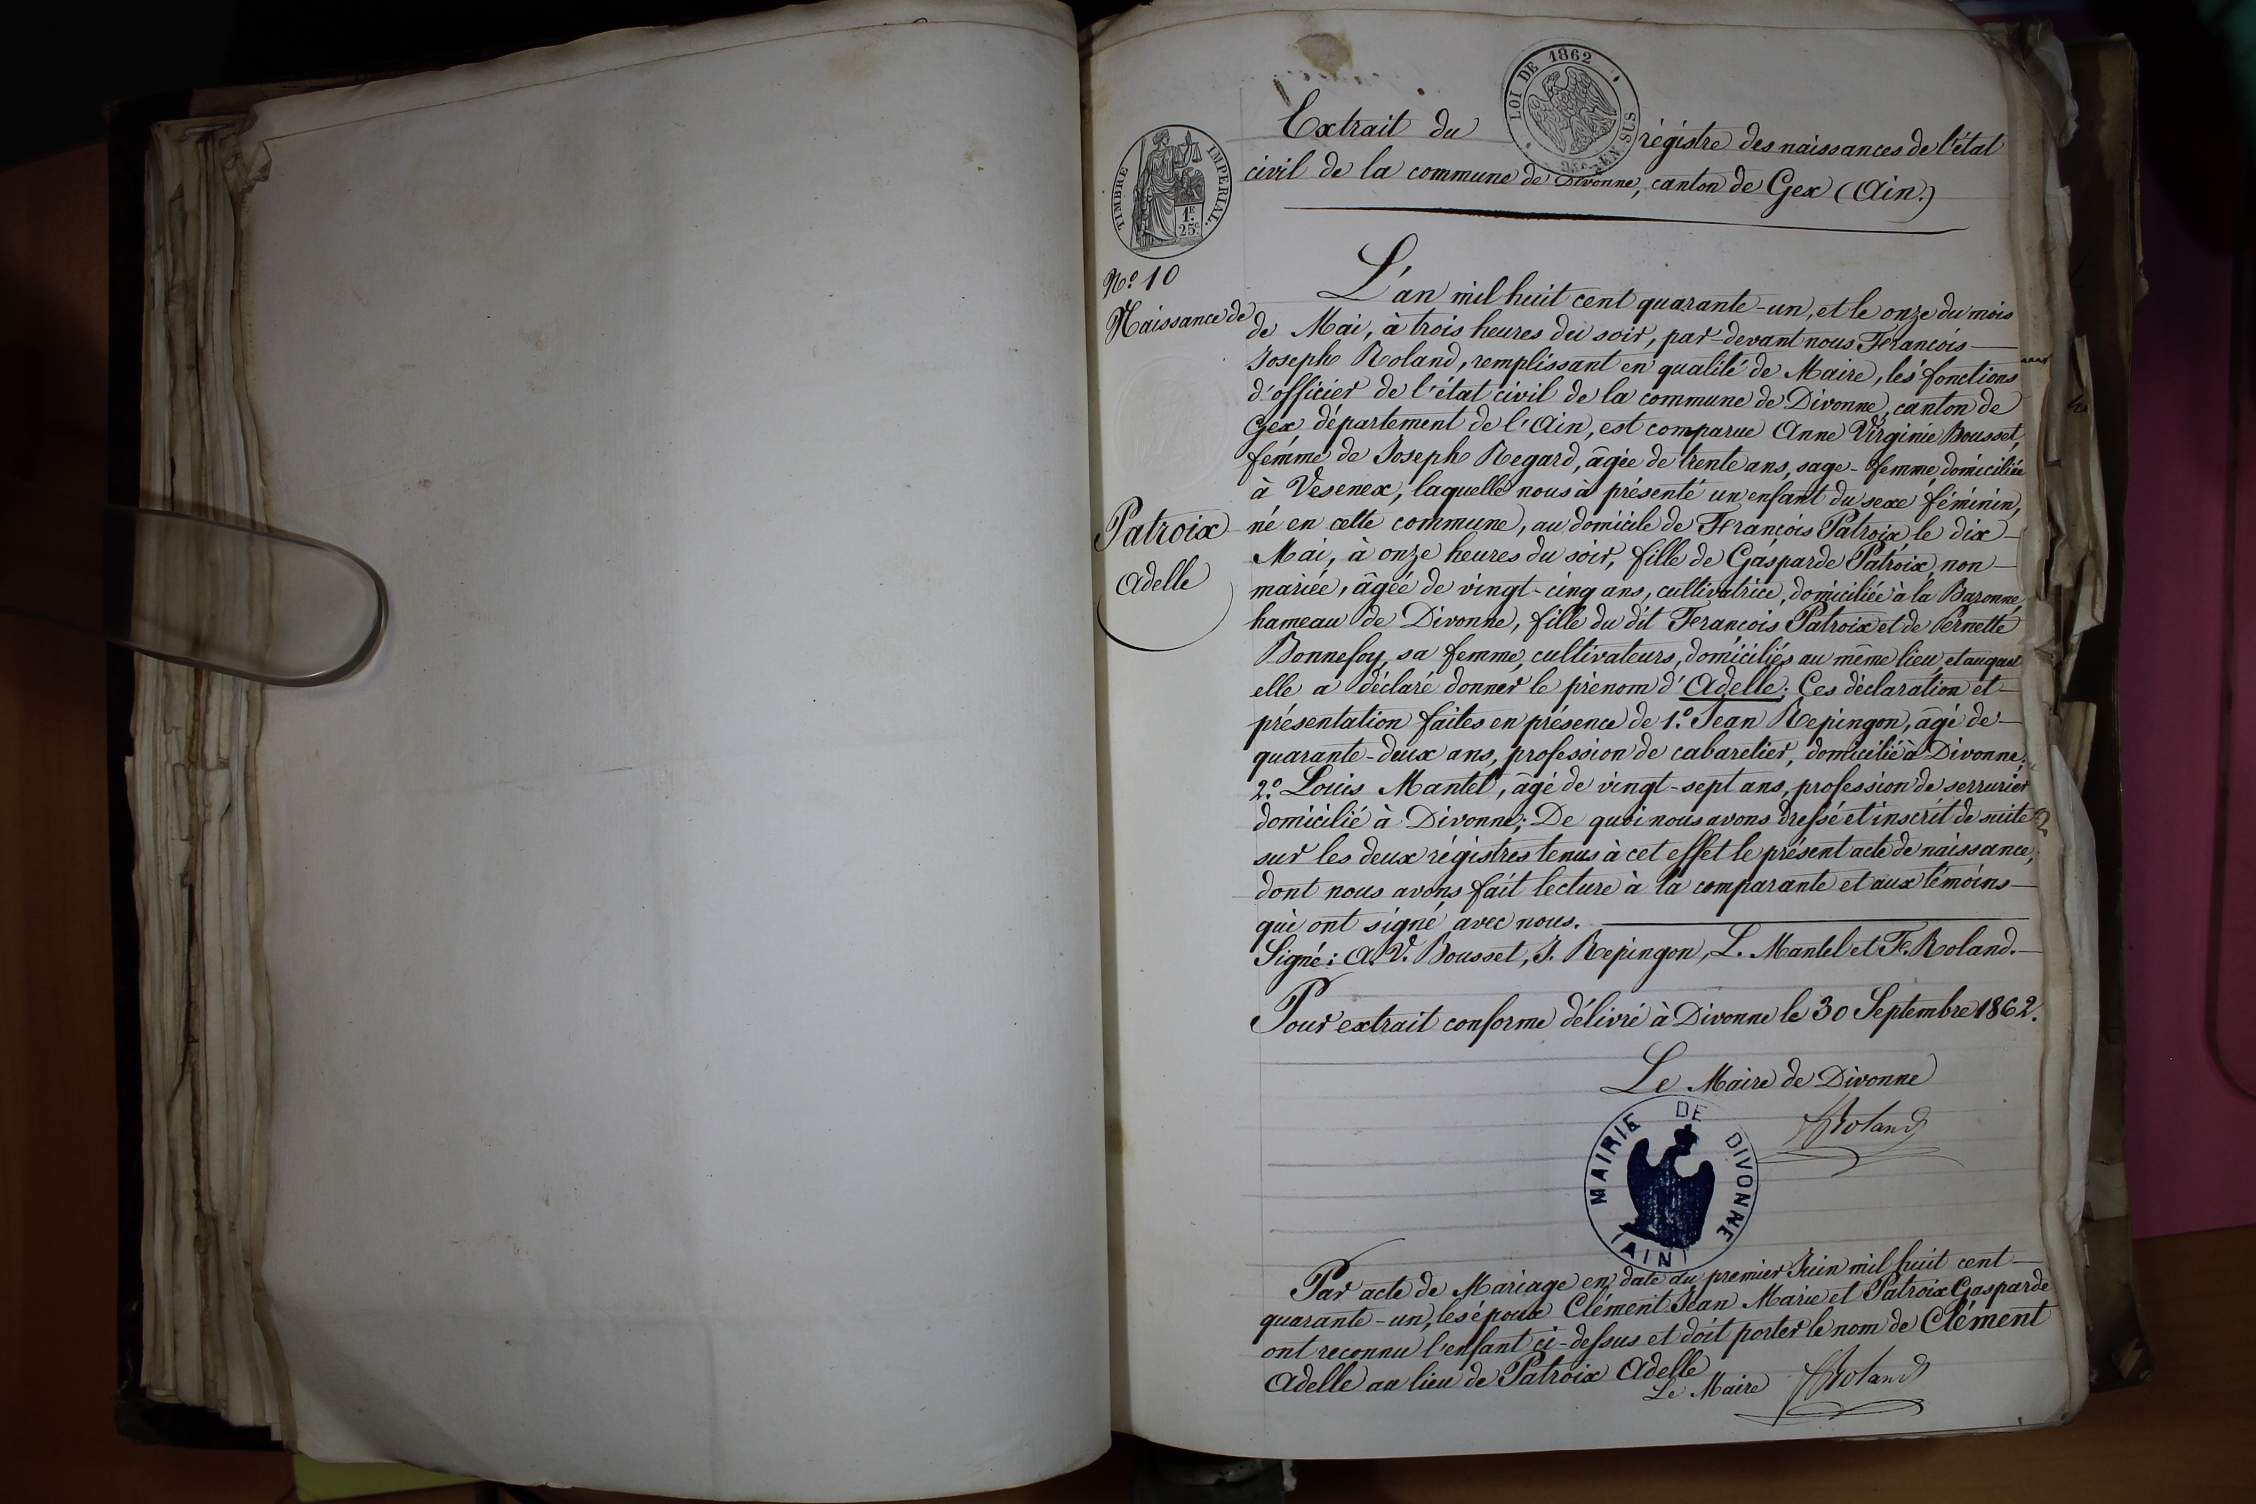 LOI DE 1862
EN SUS
TIMBRE IMPERIAL.
1F.
25c.
Extrait du régistre des naissances de l'état
civil de la commune de Divonne, canton de Gex (Ain.)
No. 10
Naissance de
Patroix
Adelle
L'an mil huit cent quarante-un, et le onze du mois
de Mai, à trois heures du soir, par-devant nous François
Joseph Roland, remplissant en qualité de Maire, les fonctions
d'officier de l'état civil de la commune de Divonne, canton de
Gex département de l'Ain, est comparue Anne Virginie Bousset,
femme de Joseph Regard, âgée de trente ans, sage-femme, domiciliée
à Vesenex, laquelle nous à présenté un enfant du sexe féminin,
né en cette commune, au domicile de François Patroix, le dix
Mai, à onze heures du soir, fille de Gasparde Patroix, non
mariée, âgée de vingt-cinq ans, cultivatrice, domiciliée à la Baronne,
hameau de Divonne, fille du dit François Patroix et de Pernette
Bonnefoy, sa femme, cultivateurs, domiciliés au même lieu, et auquel
elle a déclaré donner le prénom d'Adelle; Ces déclaration et
présentation faites en présence de 1.o Jean Repingon, âgé de
quarante-deux ans, profession de cabaretier, domicilié à Divonne;
2.o Louis Mantel, âgé de vingt-sept ans, profession de serrurier
domicilié à Divonne; De quoi nous avons dressé et inscrit de suite
sur les deux régistres tenus à cet effet le présent acte de naissance,
dont nous avons fait lecture à la comparante et aux témoins
qui ont signé avec nous.
Signé: A.V. Bousset, J. Repingon, L. Mantel et F. Roland.
Pour extrait conforme délivré à Divonne le 30 Septembre 1862.
Le Maire de Divonne
Roland
MAIRIE DE DIVONNE
(AIN)
Par acte de Mariage en date du premier Juin mil huit cent
quarante-un, les époux Clément Jean Marie et Patroix Gasparde
ont reconnu l'enfant ci-dessus et doit porter le nom de Clément
Adelle au lieu de Patroix Adelle
Le Maire Roland